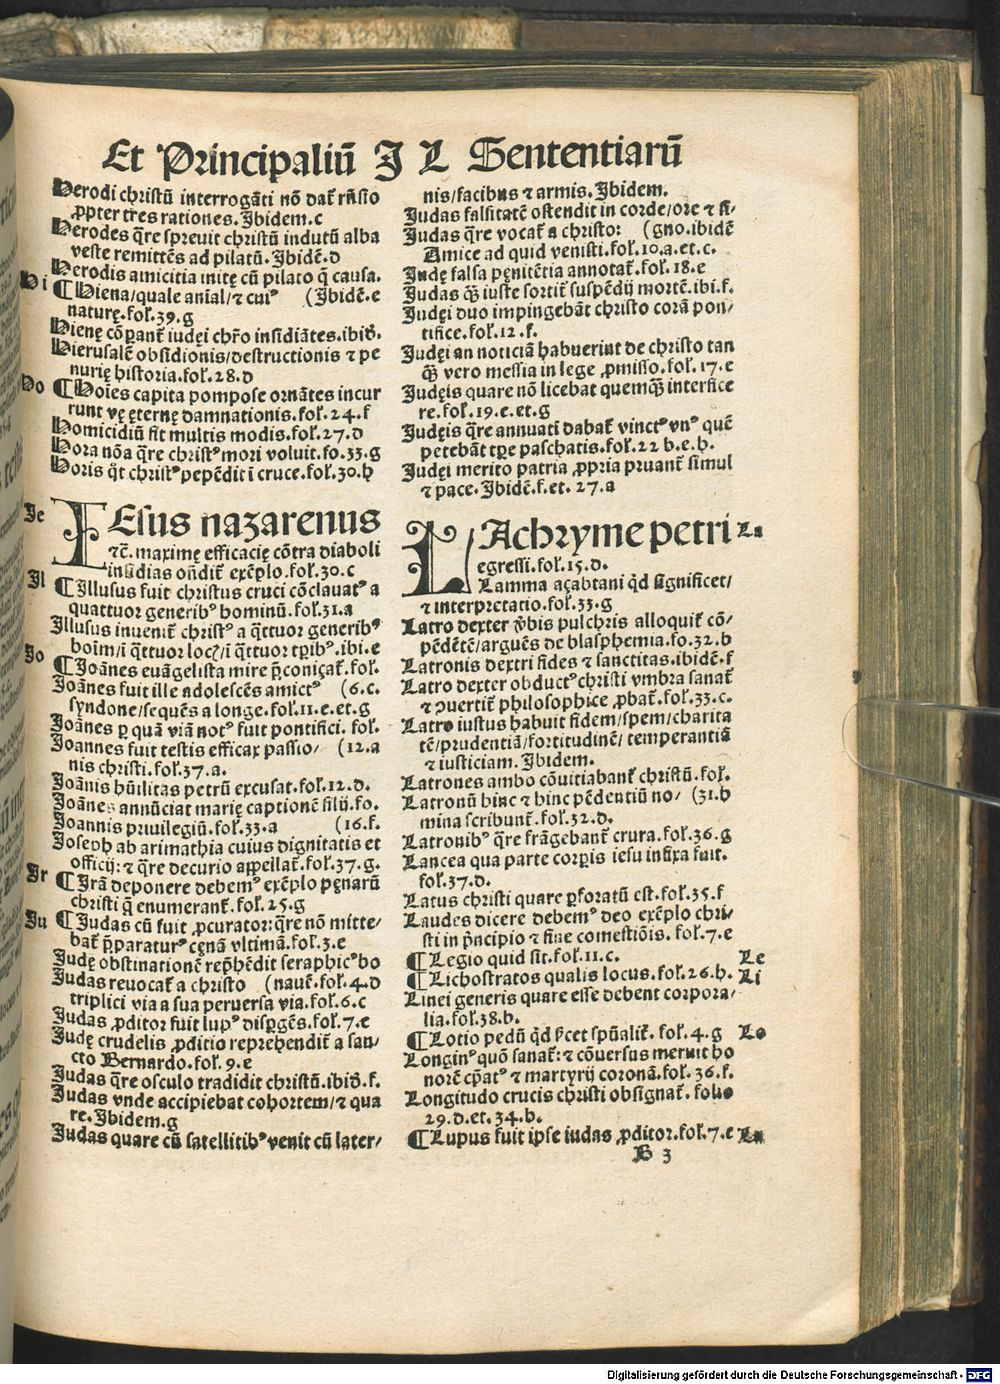 Et Principaliū I L Sententiarū
Herodi christū interrogāti nō dat̄ rn̄sio
ꝓpter tres rationes. Ibidem.c
Herodes q̄re spreuit christū indutū alba
veste remittēs ad pilatū. Ibidē.d
Herodis amicitia inite cū pilato q̄ causa.
Hi ¶ Hiena/quale aīal/⁊ cuiꝰ (Ibidē.e
naturę.fol̄.39.g
Hienę cōꝑant̄ iudęi chr̄o insidiātes.ibid̄.
Hierusalē obsidionis/destructionis ⁊ pe
nurię historia.fol̄.28.d
Ho ¶ Hoīes capita pompose ornātes incur
runt vę ęternę damnationis.fol̄.24.f
Homicidiū fit multis modis.fol̄.27.d
Hora nōa q̄re christꝰ mori voluit.fo.33.g
Horis q̄t christꝰ pepēdit ī cruce.fol̄.30.h
Ie IEsus nazarenus
⁊c̄. maximę efficacię cōtra diaboli
insidias on̄dit̄ exēplo.fol̄.30.c
Il ¶ Illusus fuit christus cruci cōclauatꝰ a
quattuor generibꝰ hominū.fol̄.31.a
Illusus inuenit̄ christꝰ a q̄ttuor generibꝰ
hoīm/i q̄ttuor locꝭ/i q̄ttuor tꝑibꝰ.ibi.e
Io ¶ Ioānes euāgelista mire p̄coniçat̄.fol̄.
Ioānes fuit ille adolescēs amictꝰ (6.c.
syndone/sequēs a longe.fol̄.11.e.et.g
Ioānes ꝑ quā viā notꝰ fuit pontifici. fol̄.
Ioannes fuit testis efficax passio/ (12.a
nis christi.fol̄.37.a.
Ioānis hūilitas petrū excusat.fol̄.12.d.
Ioānes annūciat marię captionē filij.fo.
Ioannis priuilegiū.fol̄.33.a (16.f.
Ioseph ab arimathia cuius dignitatis et
officij: ⁊ q̄re decurio appellat̄.fol̄.37.g.
Ir ¶ Irā deponere debemꝰ exēplo pęnarū
christi q̄ enumerant̄.fol̄.25.g
Iu ¶ Iudas cū fuit ꝓcurator: q̄re nō mitte/
bat̄ p̄paraturꝰ cęnā vltimā.fol̄.3.e
Iudę obstinationē rep̄hēdit seraphicꝰ bo
Iudas reuocat̄ a christo (nauē.fol̄.4.d
triplici via a sua peruersa via.fol̄.6.c
Iudas ꝓditor fuit lupꝰ disꝑgēs.fol̄.7.e
Iudę crudelis ꝓditio reprehendit̄ a san/
cto Bernardo.fol̄.9.e
Iudas q̄re osculo tradidit christū.ibid̄.f.
Iudas vnde accipiebat cohortem/⁊ qua
re.Ibidem.g
Iudas quare cū satellitibꝰ venit cū later/
nis/facibus ⁊ armis. Ibidem.
Iudas falsitatē ostendit in corde/ore ⁊ si/
Iudas q̄re vocat̄ a christo: (gno.ibidē
Amice ad quid venisti.fol̄.10.a.et.c.
Iudę falsa pęnitētia annotat̄.fol̄.18.e
Iudas q̄ꝫ iuste sortit̄ suspēdij mortē.ibi.f.
Iudęi duo impingebāt christo corā pon/
tifice.fol̄.12.f.
Iudęi an noticiā habuerint de christo tan
q̄ꝫ vero messia in lege ꝓmisso.fol̄.17.e
Iudęis quare nō licebat quemq̄ꝫ interfice
re.fol̄.19.e.et.g
Iudęis q̄re annuati dabat̄ vinctꝰ vnꝰ quē
petebāt tꝑe paschatis.fol̄.22 b.e.h.
Iudęi merito patria ꝓpria pruant̄ simul
⁊ pace. Ibidē.f.et. 27.a
LAchryme petri La
egressi.fol̄.15.d.
Lamma açabtani q̄d significet/
⁊ interpretatio.fol̄.33.g
Latro dexter v̄bis pulchris alloquit̄ cō/
pēdētē/arguēs de blasphemia.fo.32.b
Latronis dextri fides ⁊ sanctitas.ibidē.f
Latro dexter obductꝰ christi vmbra sanat̄
⁊ ↄuertit̄ philosophice ꝓbat̄.fol̄.33.c.
Latro iustus habuit fidem/spem/charita
tē/prudentiā/fortitudinē/ temperantiā
⁊ iusticiam. Ibidem.
Latrones ambo cōuitiabant̄ christū.fol̄.
Latronū hinc ⁊ hinc pēdentiū no/ (31.h
mina scribunt̄.fol̄.32.d.
Latronibꝰ q̄re frāgebant̄ crura.fol̄.36.g
Lancea qua parte corꝑis iesu infixa fuit.
fol̄.37.d.
Latus christi quare ꝑforatū est.fol̄.35.f
Laudes dicere debemꝰ deo exēplo chri/
sti in p̄ncipio ⁊ fine comestiōis. fol̄.7.e
¶ Legio quid sit.fol̄.11.c. Le
¶ Lichostratos qualis locus.fol̄.26.h. Li
Linei generis quare esse debent corpora/
lia.fol̄.38.h.
¶ Lotio pedū q̄d v̄cet sp̄ualit̄. fol̄.4.g Lo
Longinꝰ quō sanat̄: ⁊ cōuersus meruit ho
norē cp̄atꝰ ⁊ martyrij coronā.fol̄.36.f.
Longitudo crucis christi obsignat̄. folio
29.d.et.34.b.
¶ Lupus fuit ipse iudas ꝓditor.fol̄.7.e Lu
B 3
Digitalisierung gefördert durch die Deutsche Forschungsgemeinschaft - DFG